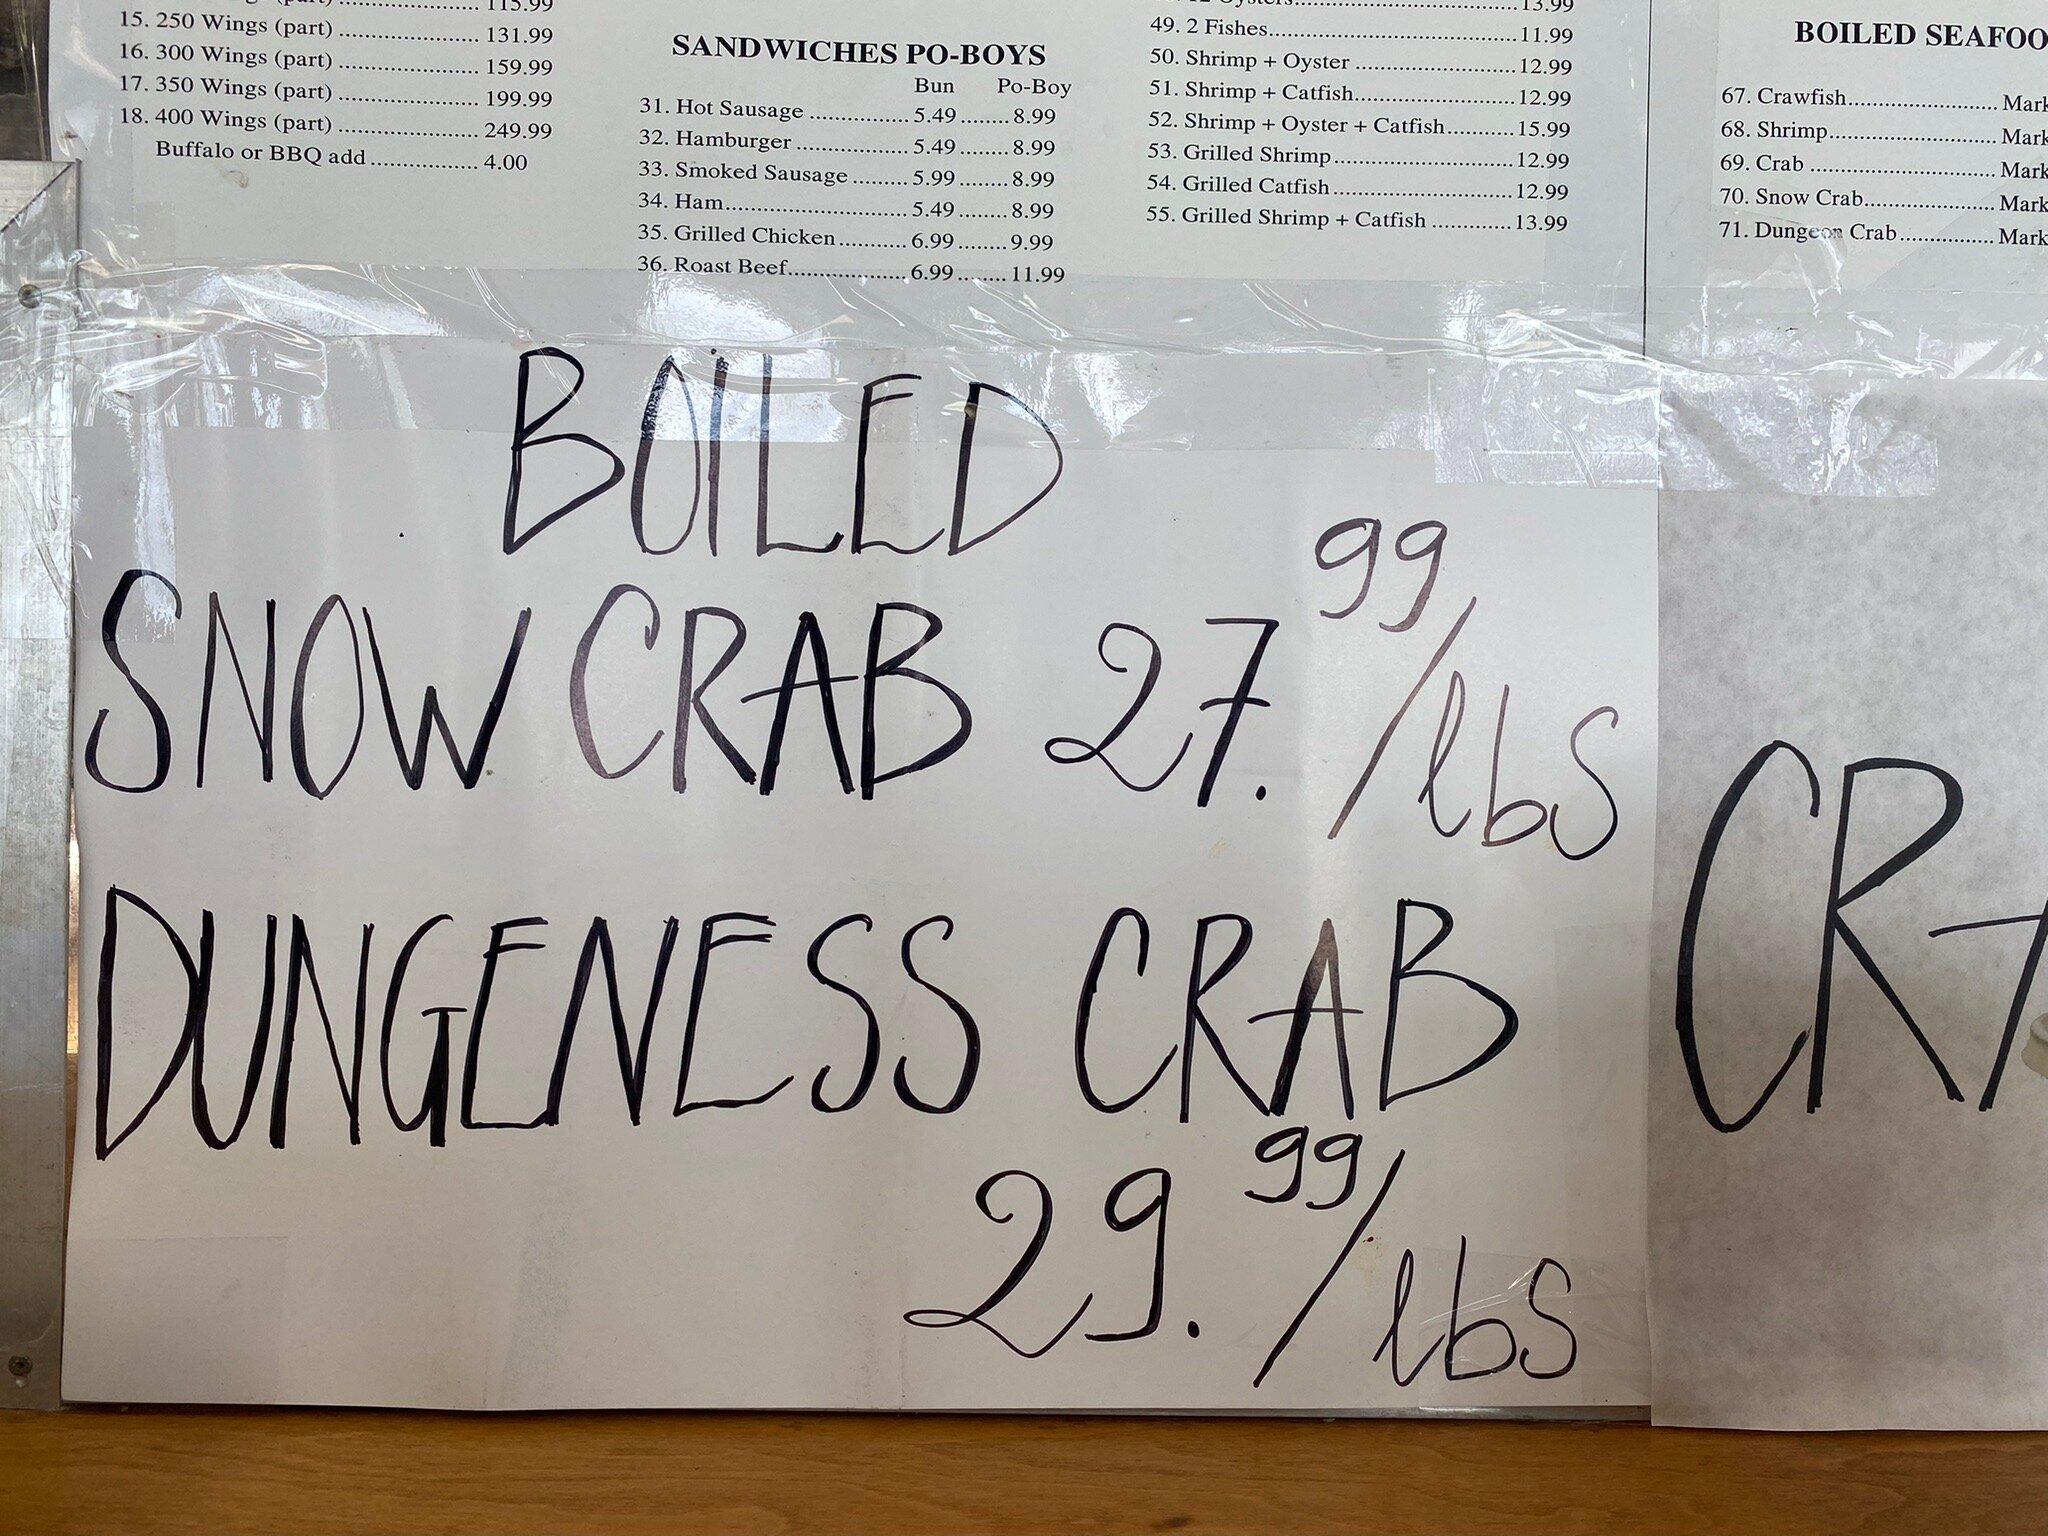 115.99
15. 250 Wings (part) .................... 131.99
16. 300 Wings (part) .................... 159.99
17. 350 Wings (part) .................... 199.99
18. 400 Wings (part) .................... 249.99
Buffalo or BBQ add ............... 4.00
SANDWICHES PO-BOYS
Bun Po-Boy
31. Hot Sausage .............. 5.49 ........ 8.99
32. Hamburger ................ 5.49 ........ 8.99
33. Smoked Sausage ......... 5.99 ........ 8.99
34. Ham........................... 5.49 ........ 8.99
35. Grilled Chicken .......... 6.99 ........ 9.99
36. Roast Beef................. 6.99 ........ 11.99
Oysters................................ 13.99
49. 2 Fishes................................... 11.99
50. Shrimp + Oyster ....................... 12.99
51. Shrimp + Catfish....................... 12.99
52. Shrimp + Oyster + Catfish.......... 15.99
53. Grilled Shrimp.......................... 12.99
54. Grilled Catfish .......................... 12.99
55. Grilled Shrimp + Catfish ............ 13.99
BOILED SEAFOO
67. Crawfish...................... Mark
68. Shrimp......................... Mark
69. Crab ............................ Mark
70. Snow Crab................... Mark
71. Dungeon Crab.............. Mark
BOILED
SNOW CRAB 27.99/lbs
DUNGENESS CRAB
29.99/lbs
CRA